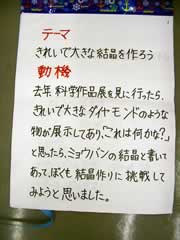 テーマ
きれいで大きな結晶を作ろう
動機
去年 科学作品展を見に行ったら、
きれいで大きなダイヤモンドのような
物が展示してあり、「これは何かな?」
と思ったら、ミョウバンの結晶と書いて
あって、ぼくも 結晶作りに 挑戦して
みようと思いました。